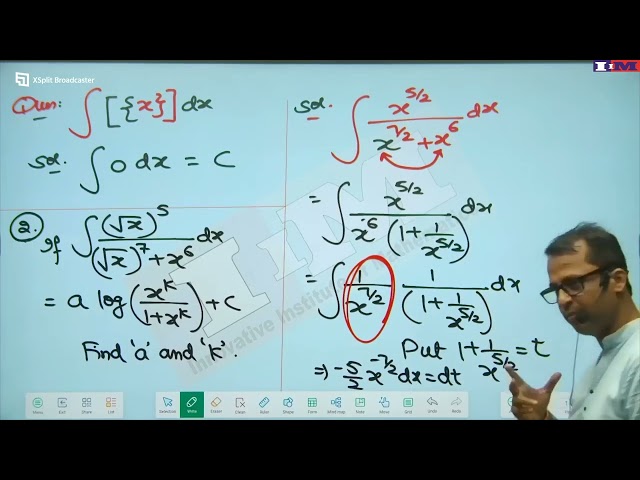 XSplit Broadcaster
IIM
Ques: ∫ [{x}] dx
Sol. ∫ 0 dx = C
2. If ∫ (√x)^5 / ((√x)^7 + x^6) dx
= a log (x^k / (1 + x^k)) + c
Find 'a' and 'k'.
Sol. ∫ x^(5/2) / (x^(7/2) + x^6) dx
= ∫ x^(5/2) / (x^6 (1 + 1/x^(5/2))) dx
= ∫ 1/x^(7/2) · 1/(1 + 1/x^(5/2)) dx
Put 1 + 1/x^(5/2) = t
⇒ -5/2 x^(-7/2) dx = dt
IIM
Innovative Institute of
Selection
Write
Eraser
Clean
Ruler
Shapes
Form
Mind map
Undo
Redo